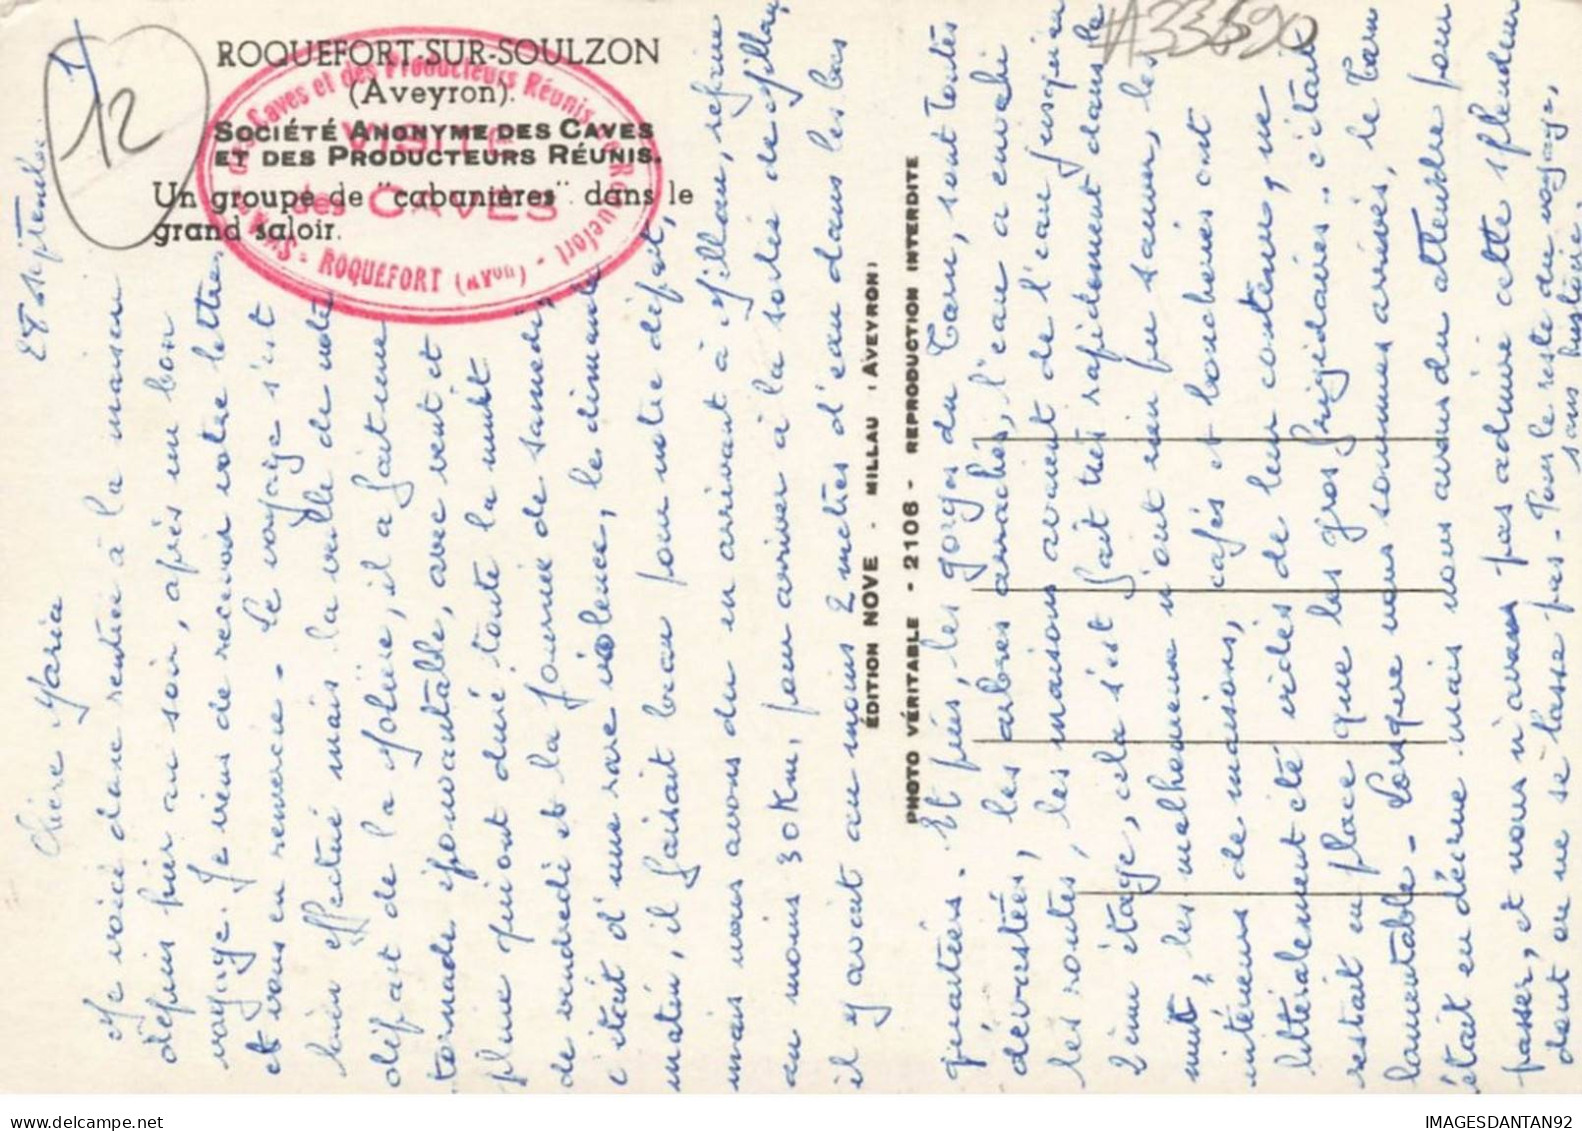 ROQUEFORT-SUR-SOULZON
(Aveyron).
SOCIÉTÉ ANONYME DES CAVES
ET DES PRODUCTEURS RÉUNIS.
Un groupe de "cabanières" dans le
grand saloir.
des Caves et des Producteurs Réunis de Roquefort -
VISITE
des CAVES
ROQUEFORT (AYon)
12
A33690
ÉDITION NOVE - MILLAU (AVEYRON)
PHOTO VÉRITABLE - 2106 - REPRODUCTION INTERDITE
28 septembre
Chère Maria
Me voici donc rentrée à la maison
depuis hier au soir, après un bon
voyage. Je viens de recevoir votre lettre
et vous en remercie - Le voyage s'est
bien effectué mais la veille de notre
départ de la Molière, il a fait une
tornade épouvantable, avec vent et
pluie qui ont duré toute la nuit
de vendredi et la journée de samedi,
c'était d'une rare violence, le dimanche
matin, il faisait beau pour notre départ,
mais nous avons du en arrivant à Millau, refaire
au moins 30 Km, pour arriver à la sortie de Millau,
il y avait au moins 2 mètres d'eau dans les bas
quartiers. Et puis, les gorges du Tarn, sont toutes
dévastées, les arbres arrachés, l'eau a envahi
les routes, les maisons avaient de l'eau jusqu'au
2ème étage, cela s'est fait très rapidement dans la
nuit, les malheureux n'ont rien pu sauver, les
intérieurs de maisons, cafés et boucheries ont
littéralement été vidés de leur contenu, ne
restait en place que les gros frigidaires. c'était
lamentable - Lorsque nous sommes arrivés, le Tarn
était en décrue mais nous avons du attendre pour
passer, et nous n'avons pas admiré cette splendeur
dont on ne se lasse pas. Tout le reste du voyage,
sans histoire.
IMAGESDANTAN92
delcampe.net